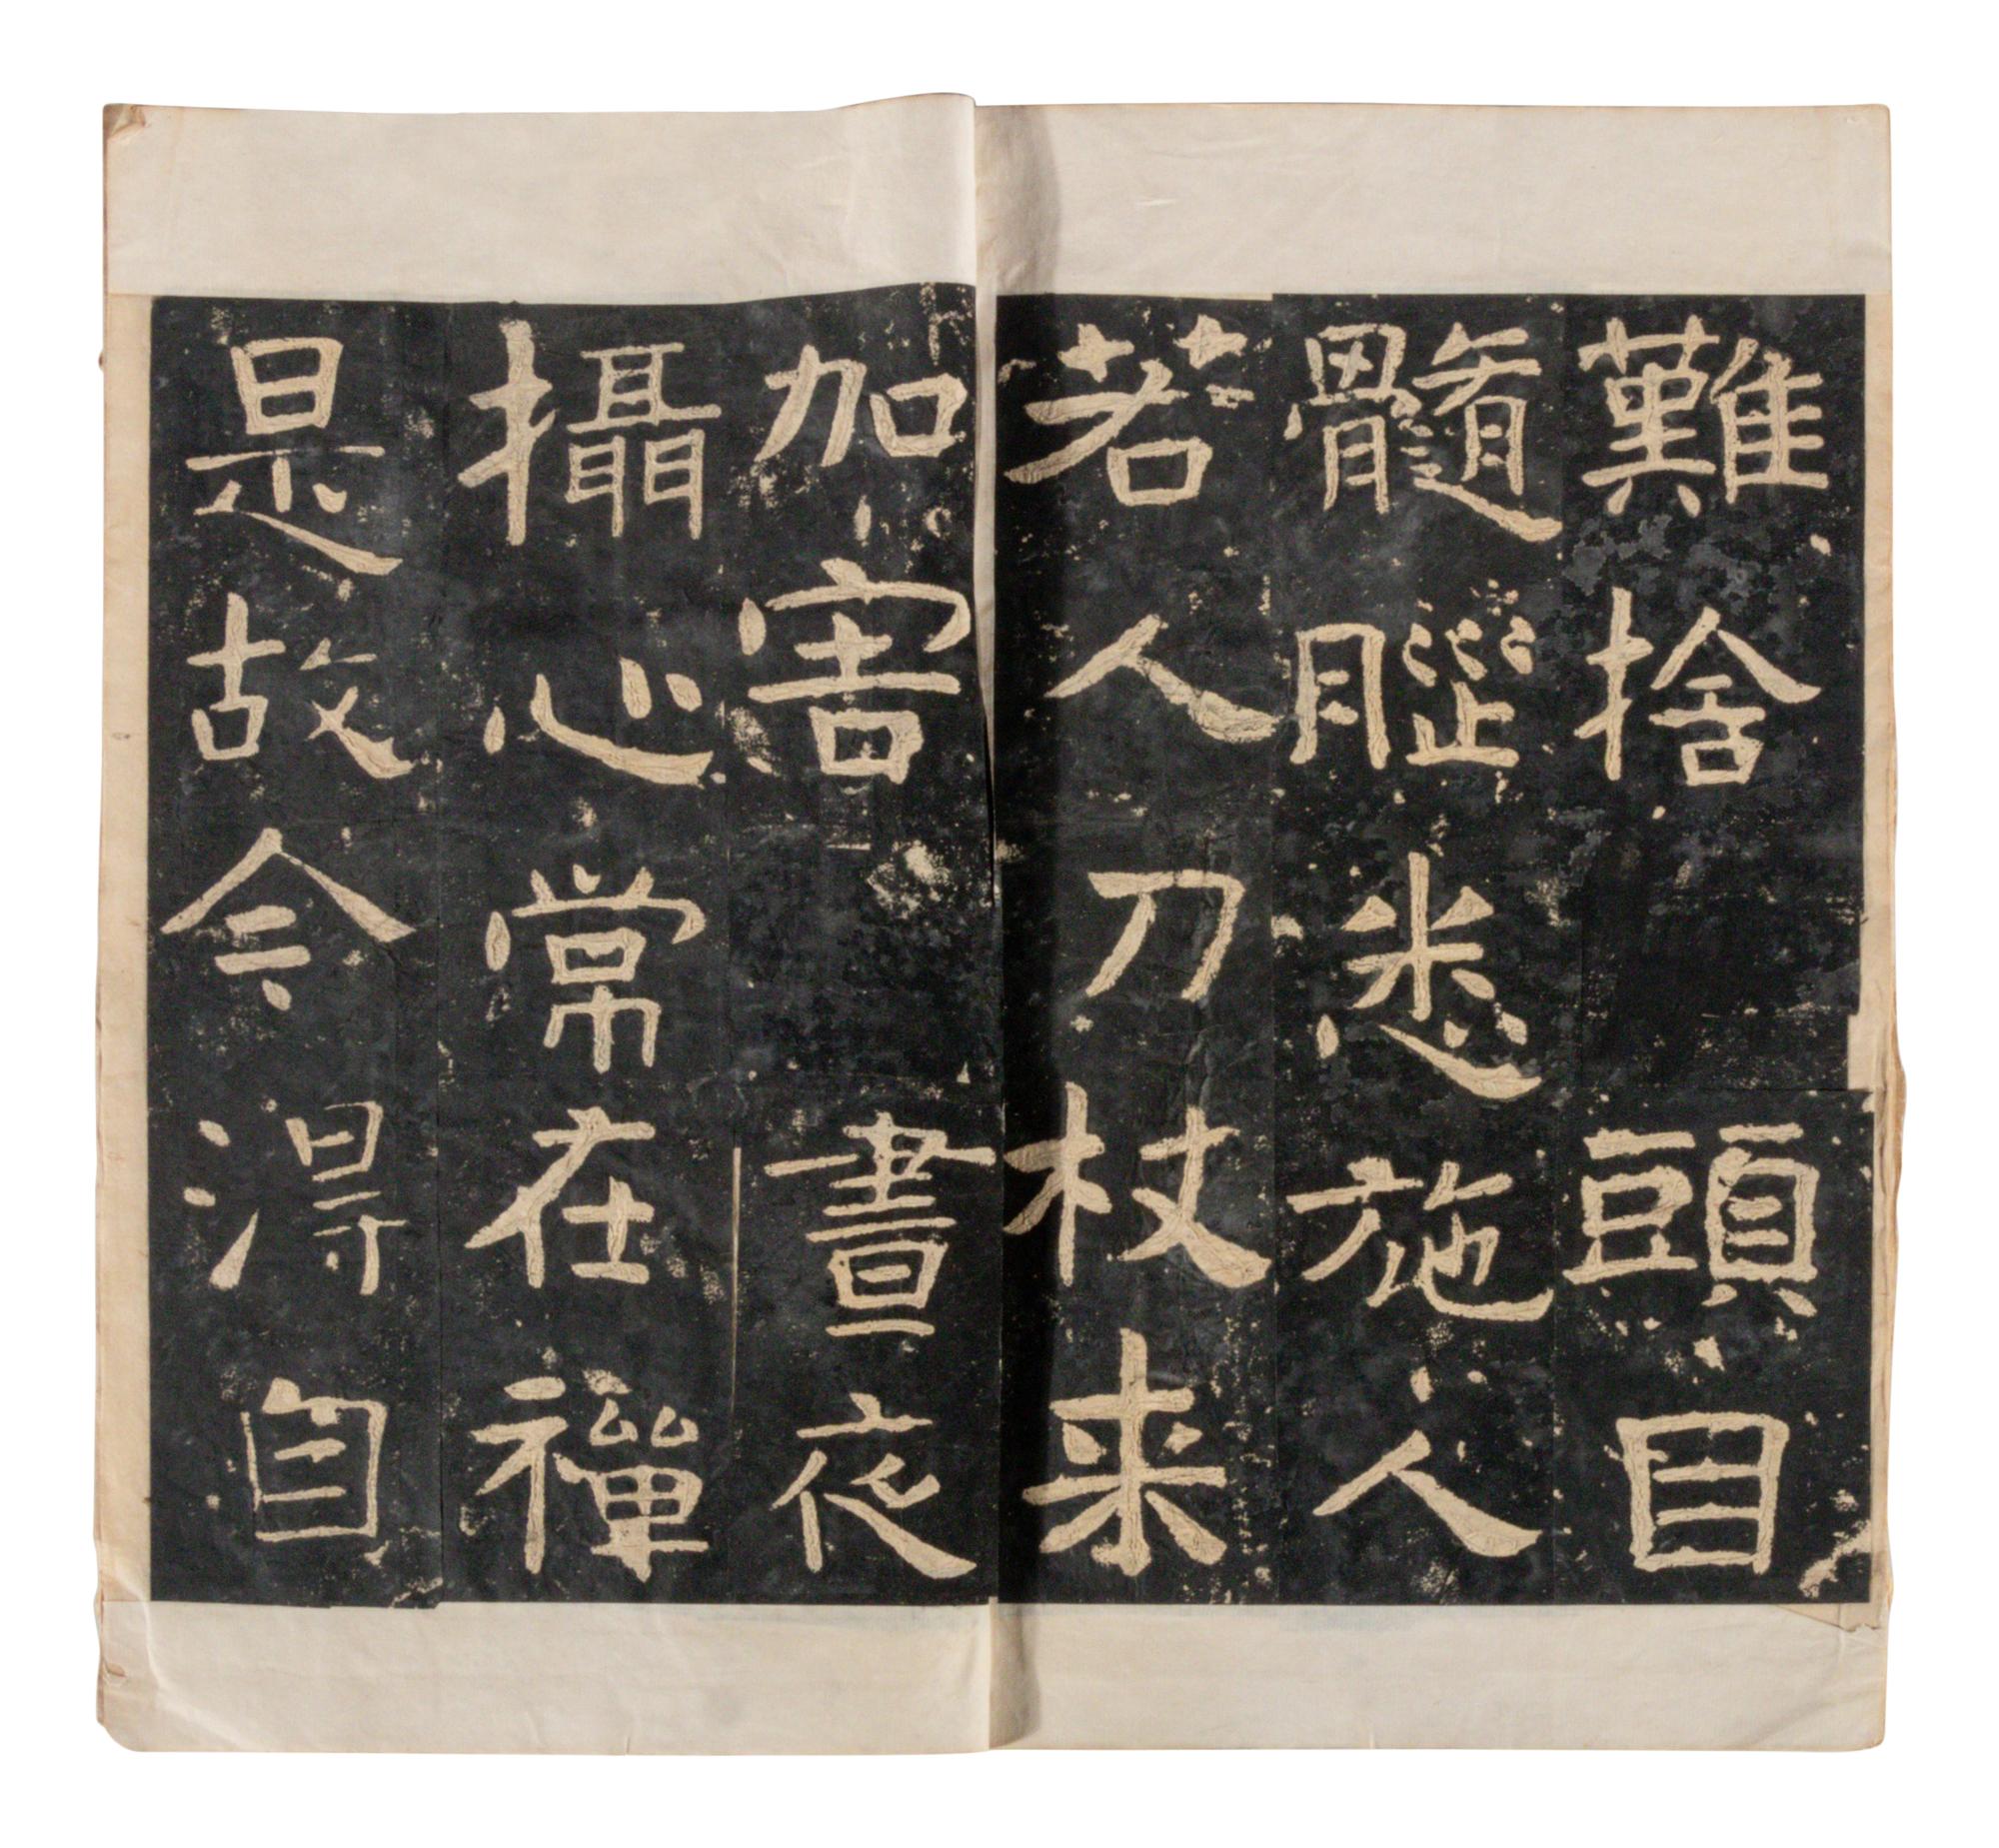 難捨頭目
髓腦悉施人
若人刀杖来
加害晝夜
攝心常在禪
是故今淂自